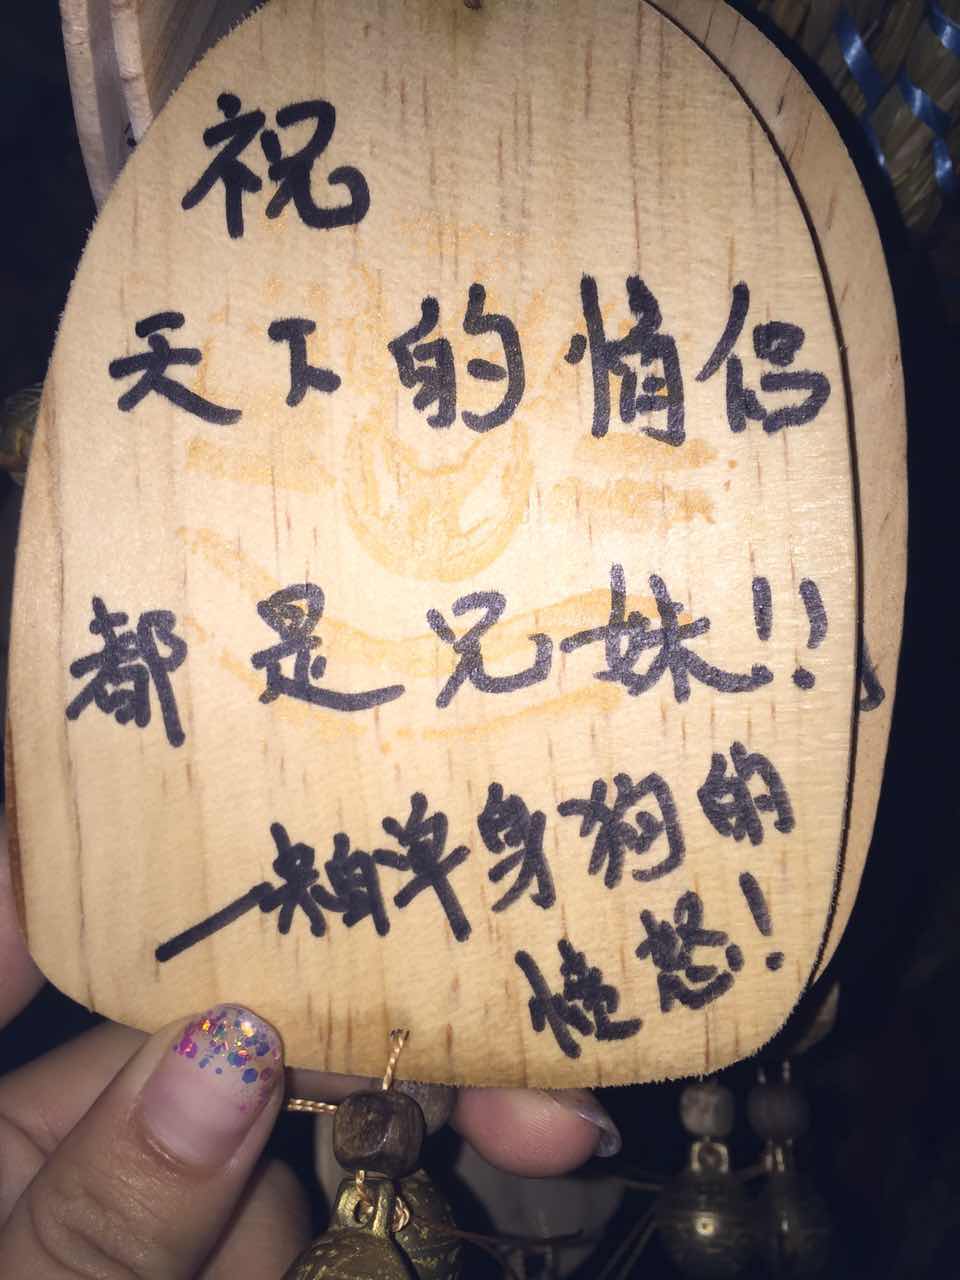 祝
天下的情侣
都是兄妹!!
一只单身狗的
愤怒!